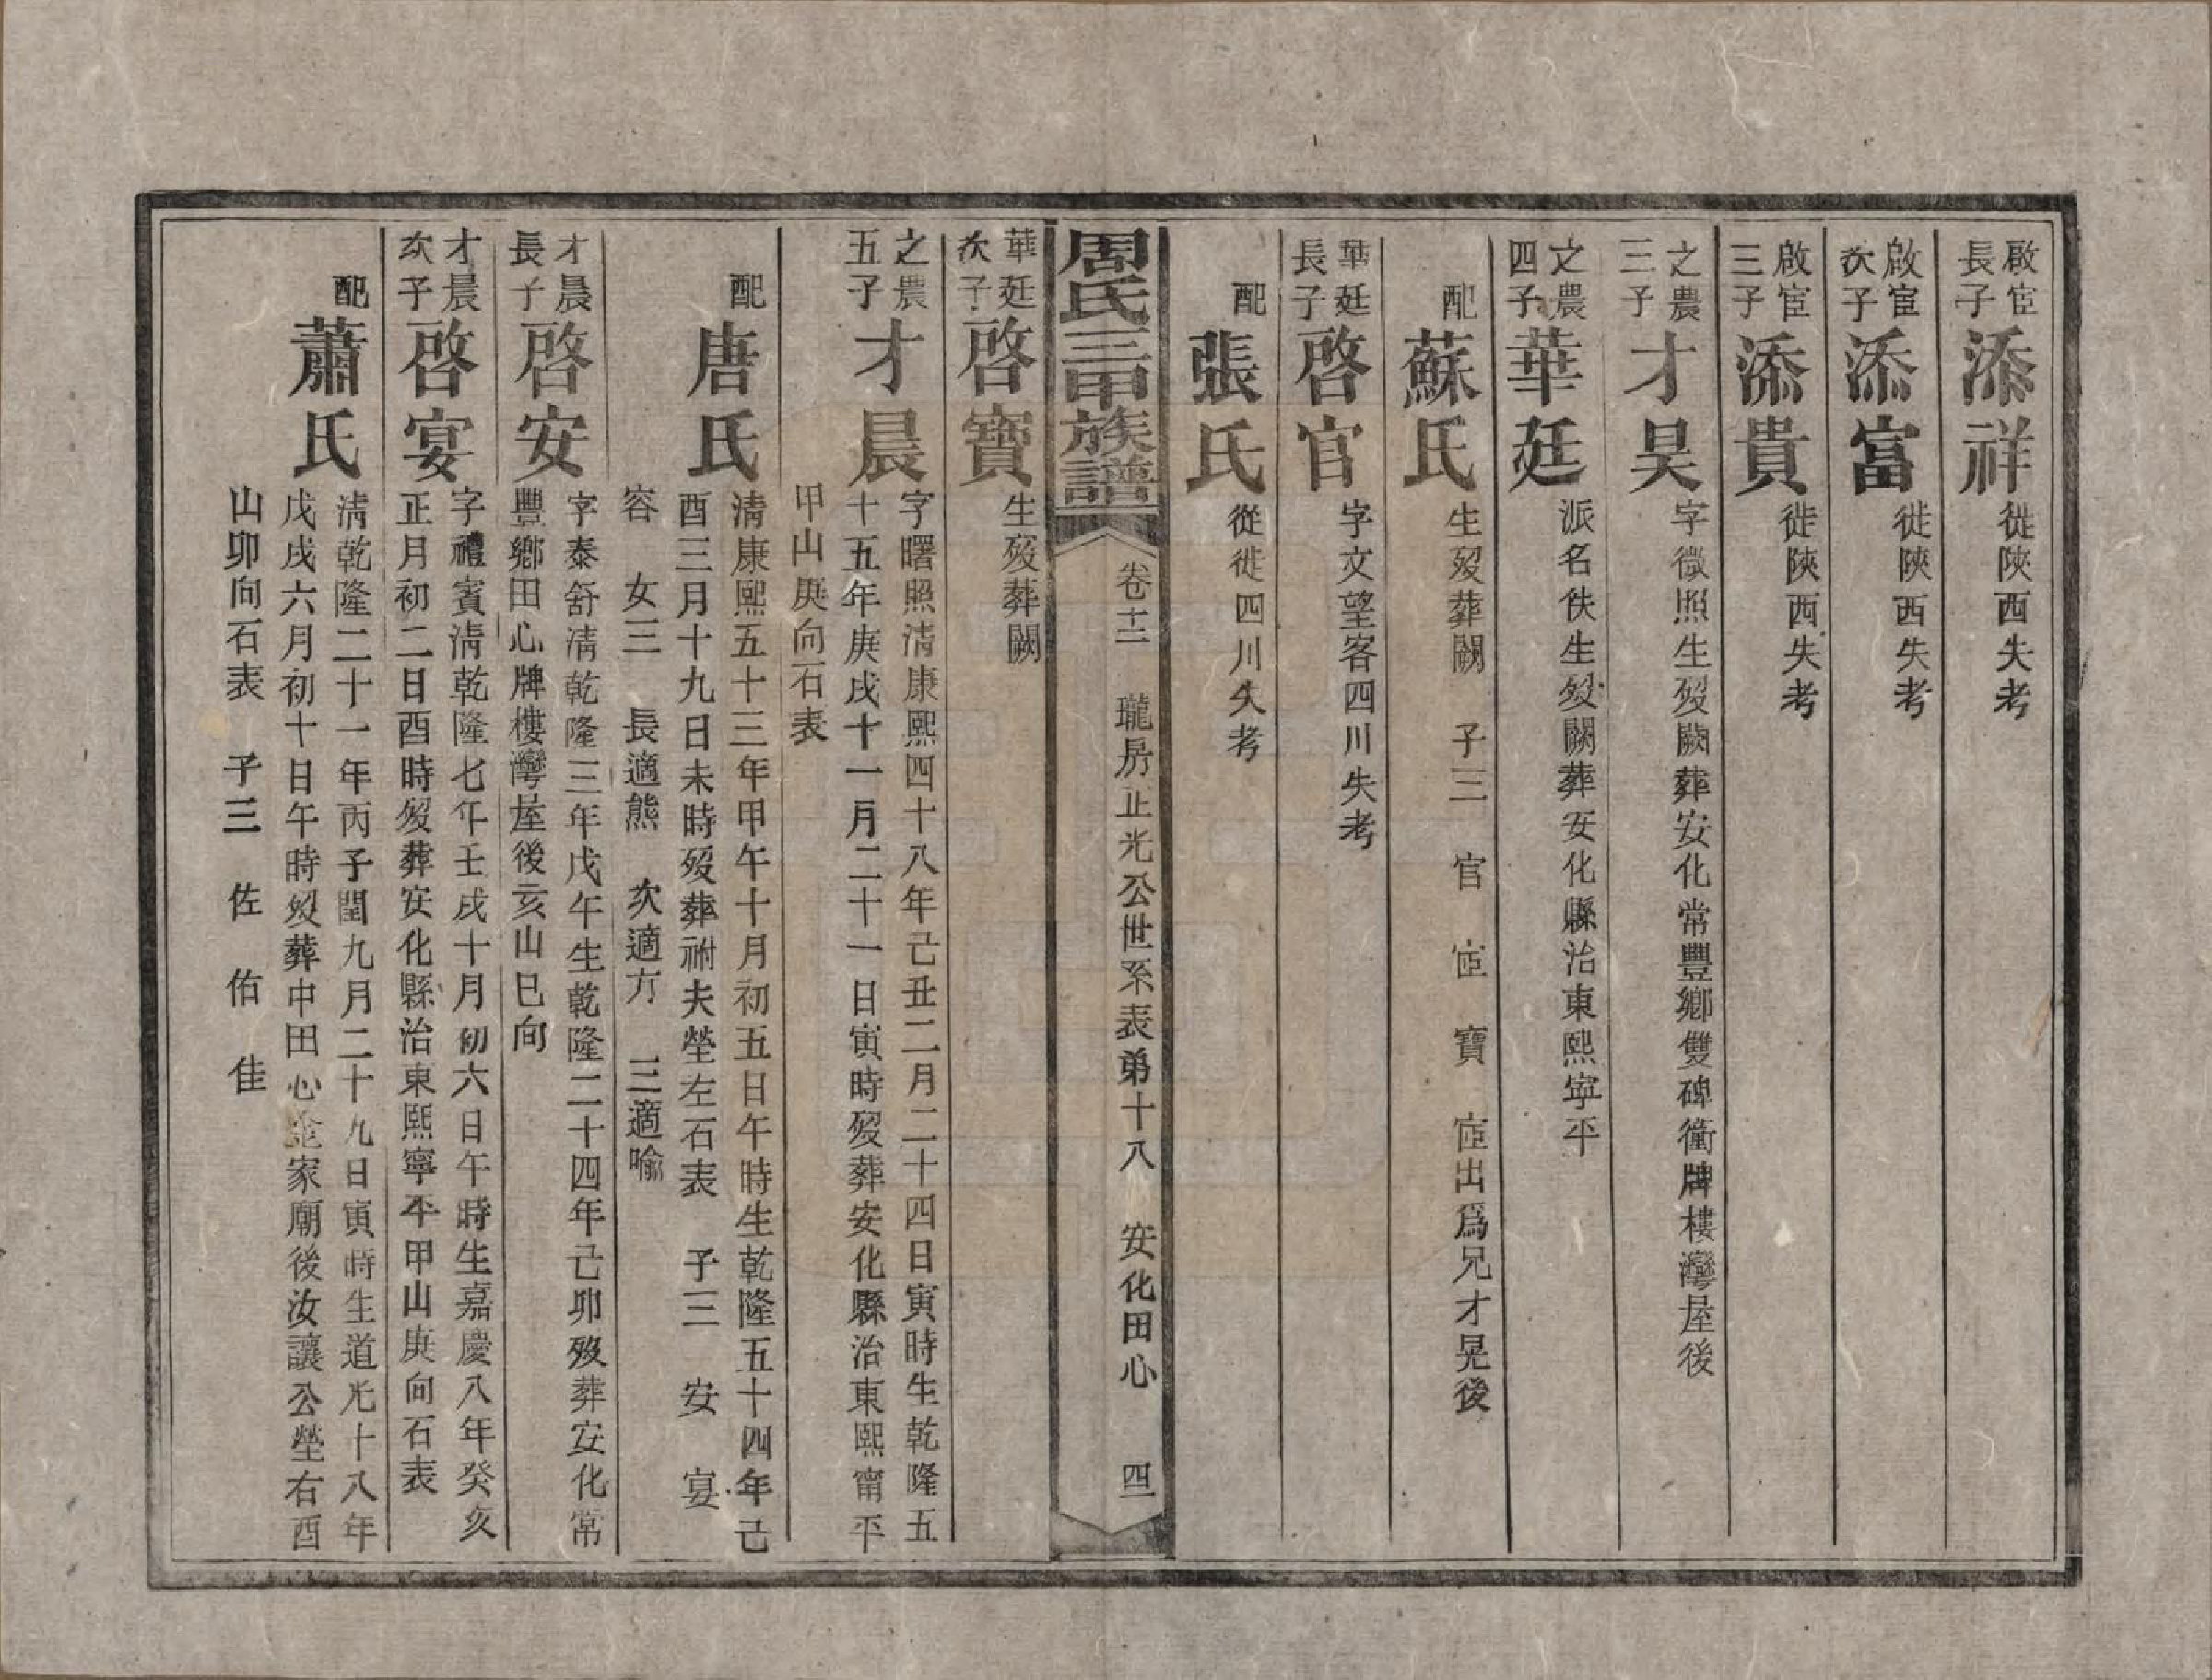 啟宦長子
添祥
徙陝西失考
啟宦次子
添富
徙陝西失考
啟宦三子
添貴
徙陝西失考
之農三子
才昊
字微照生歿闕葬安化常豐鄉雙碑衝牌樓灣屋後
之農四子
華廷
派名佚生歿闕葬安化縣治東熙寧平
配
蘇氏
生歿葬闕 子三 官 宦 寶 宦出爲兄才晃後
華廷長子
啓官
字文望客四川失考
配
張氏
從徙四川失考
周氏三甲族譜 卷十二 瓏房正光公世系表弟十八 安化田心 四
華廷次子
啓寶
生歿葬闕
之農五子
才晨
字曙照清康熙四十八年己丑二月二十四日寅時生乾隆五
十五年庚戌十一月二十一日寅時歿葬安化縣治東熙甯平
甲山庚向石表
配
唐氏
清康熙五十三年甲午十月初五日午時生乾隆五十四年己
酉三月十九日未時歿葬祔夫塋左石表 子三 安 宴
容 女三 長適熊 次適方 三適喻
才晨長子
啓安
字泰舒清乾隆三年戊午生乾隆二十四年己卯歿葬安化常
豐鄉田心牌樓灣屋後亥山巳向
才晨次子
啓宴
字禮賓清乾隆七年壬戌十月初六日午時生嘉慶八年癸亥
正月初二日酉時歿葬安化縣治東熙寧平甲山庚向石表
配
蕭氏
清乾隆二十一年丙子閏九月二十九日寅時生道光十八年
戊戌六月初十日午時歿葬中田心金家廟後汝讓公塋右酉
山卯向石表 子三 佐 佑 佳